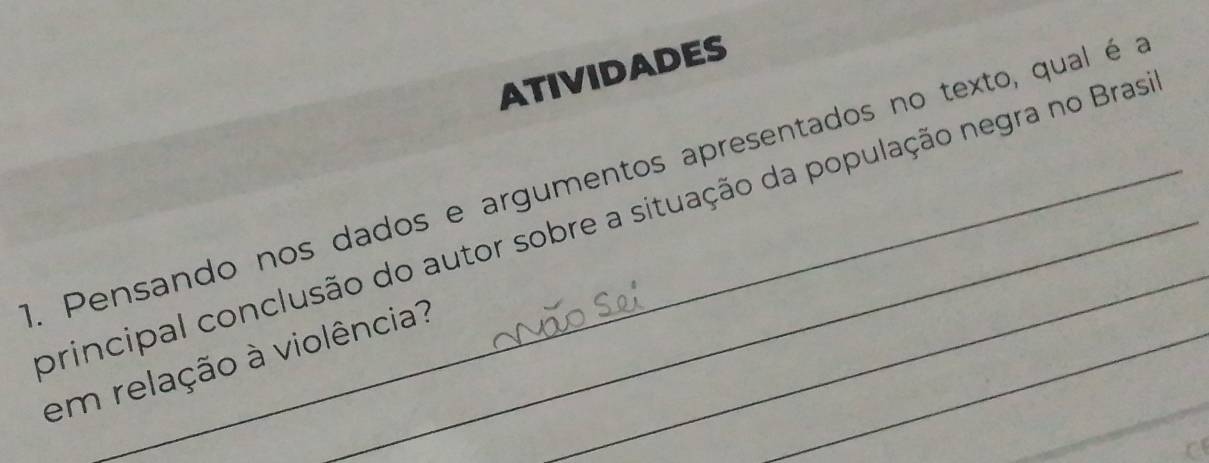 ATIVIDADES
1. Pensando nos dados e argumentos apresentados no texto, qual é a
principal conclusão do autor sobre a situação da população negra no Brasil
em relação à violência?
Não Sei